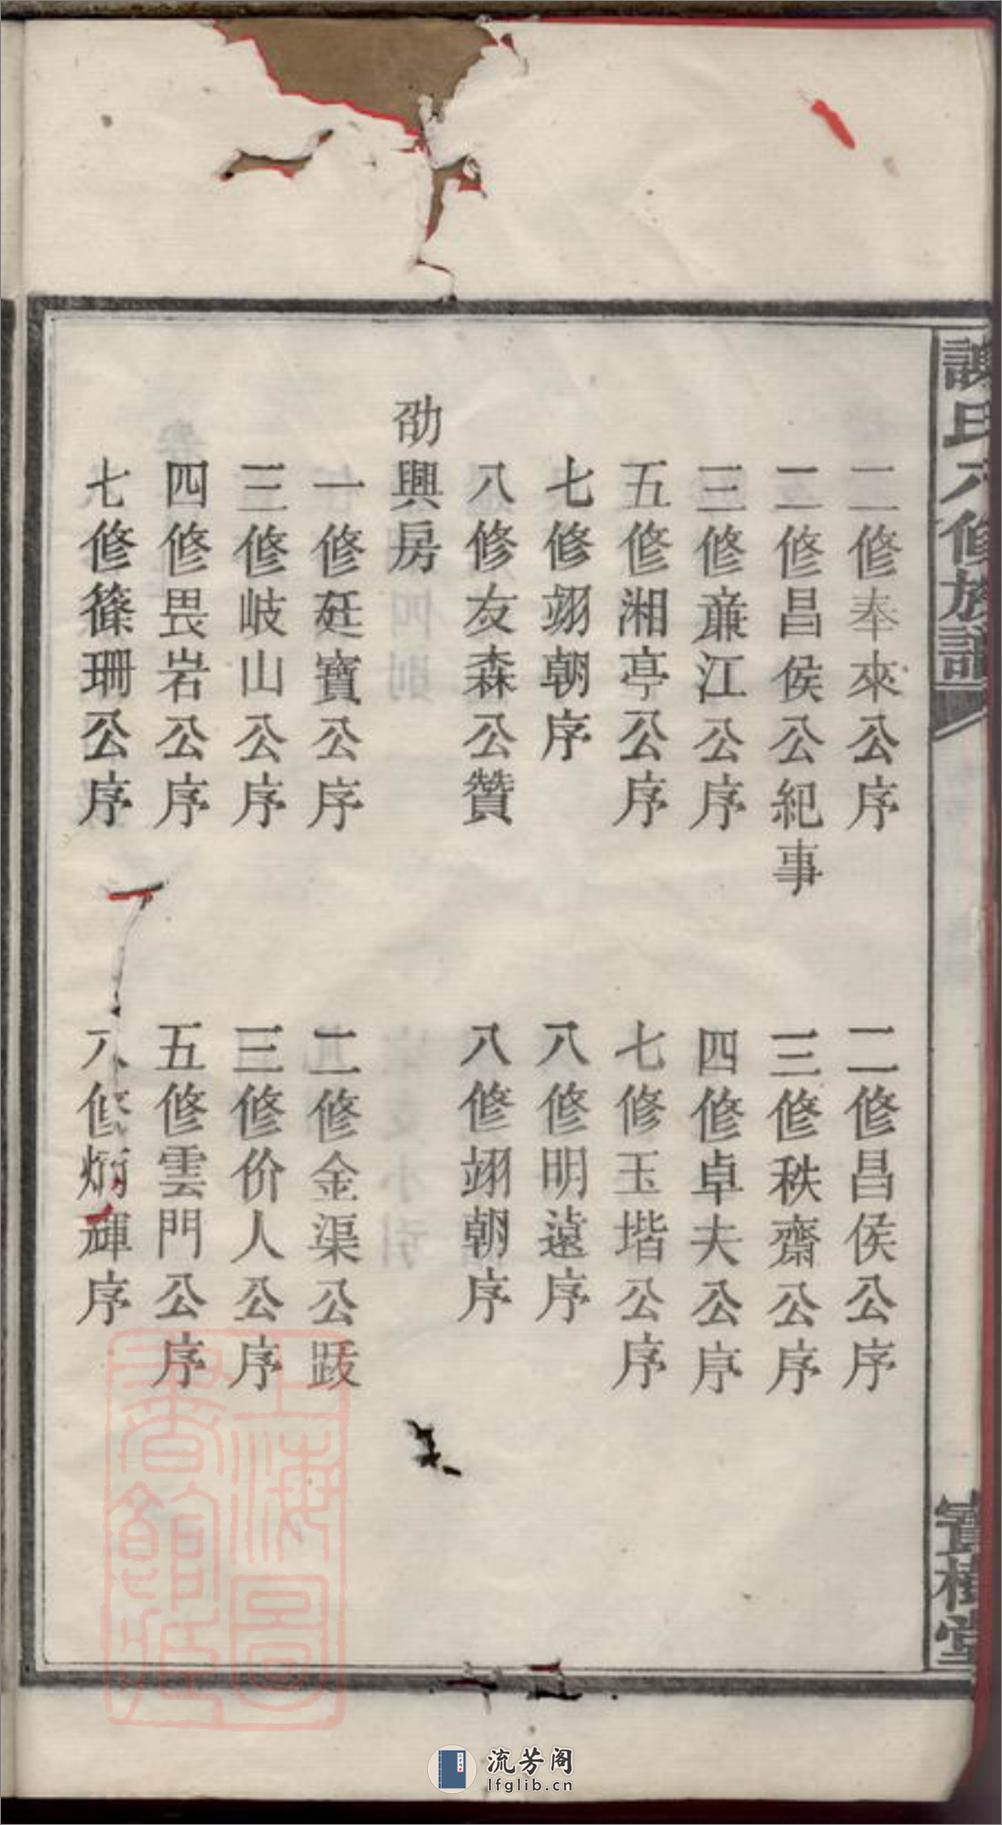 謝氏八修族譜
寶樹堂
二修奉來公序
二修昌侯公序
二修昌侯公紀事
三修秩齋公序
三修亷江公序
四修卓夫公序
五修湘亭公序
七修玉堦公序
七修翊朝序
八修明遠序
八修友森公贊
八修翊朝序
劭興房
一修廷寶公序
二修金渠公跋
三修岐山公序
三修价人公序
四修畏岩公序
五修雲門公序
七修篠珊公序
八修炳輝序
上海圖書館藏
流芳阁
lfglib.cn